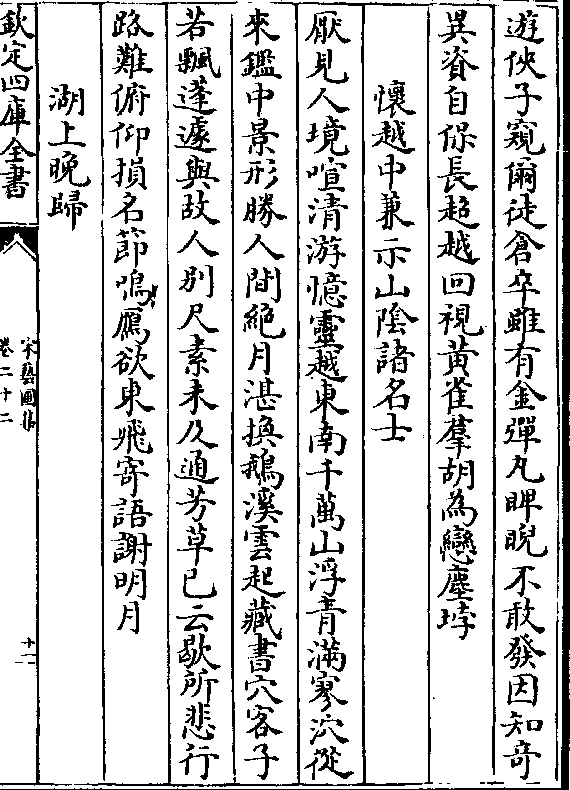 遊俠子窺爾徒倉卒雖有金彈丸睥睨不敢發因知奇
異資自保長超越回視黃雀羣胡為戀塵垺
懷越中兼示山陰諸名士
厭見人境喧清游憶靈越東南千萬山浮青滿寥泬從
來鑑中景形勝人間絶月湛換鵝溪雲起藏書穴客子
若飄蓬遽與故人别尺素未及通芳草已云歇所悲行
路難俯仰損名節嗚鴈欲東飛寄語謝明月
湖上晚歸
欽定四庫全書
宋藝圃集
卷二十二
十一